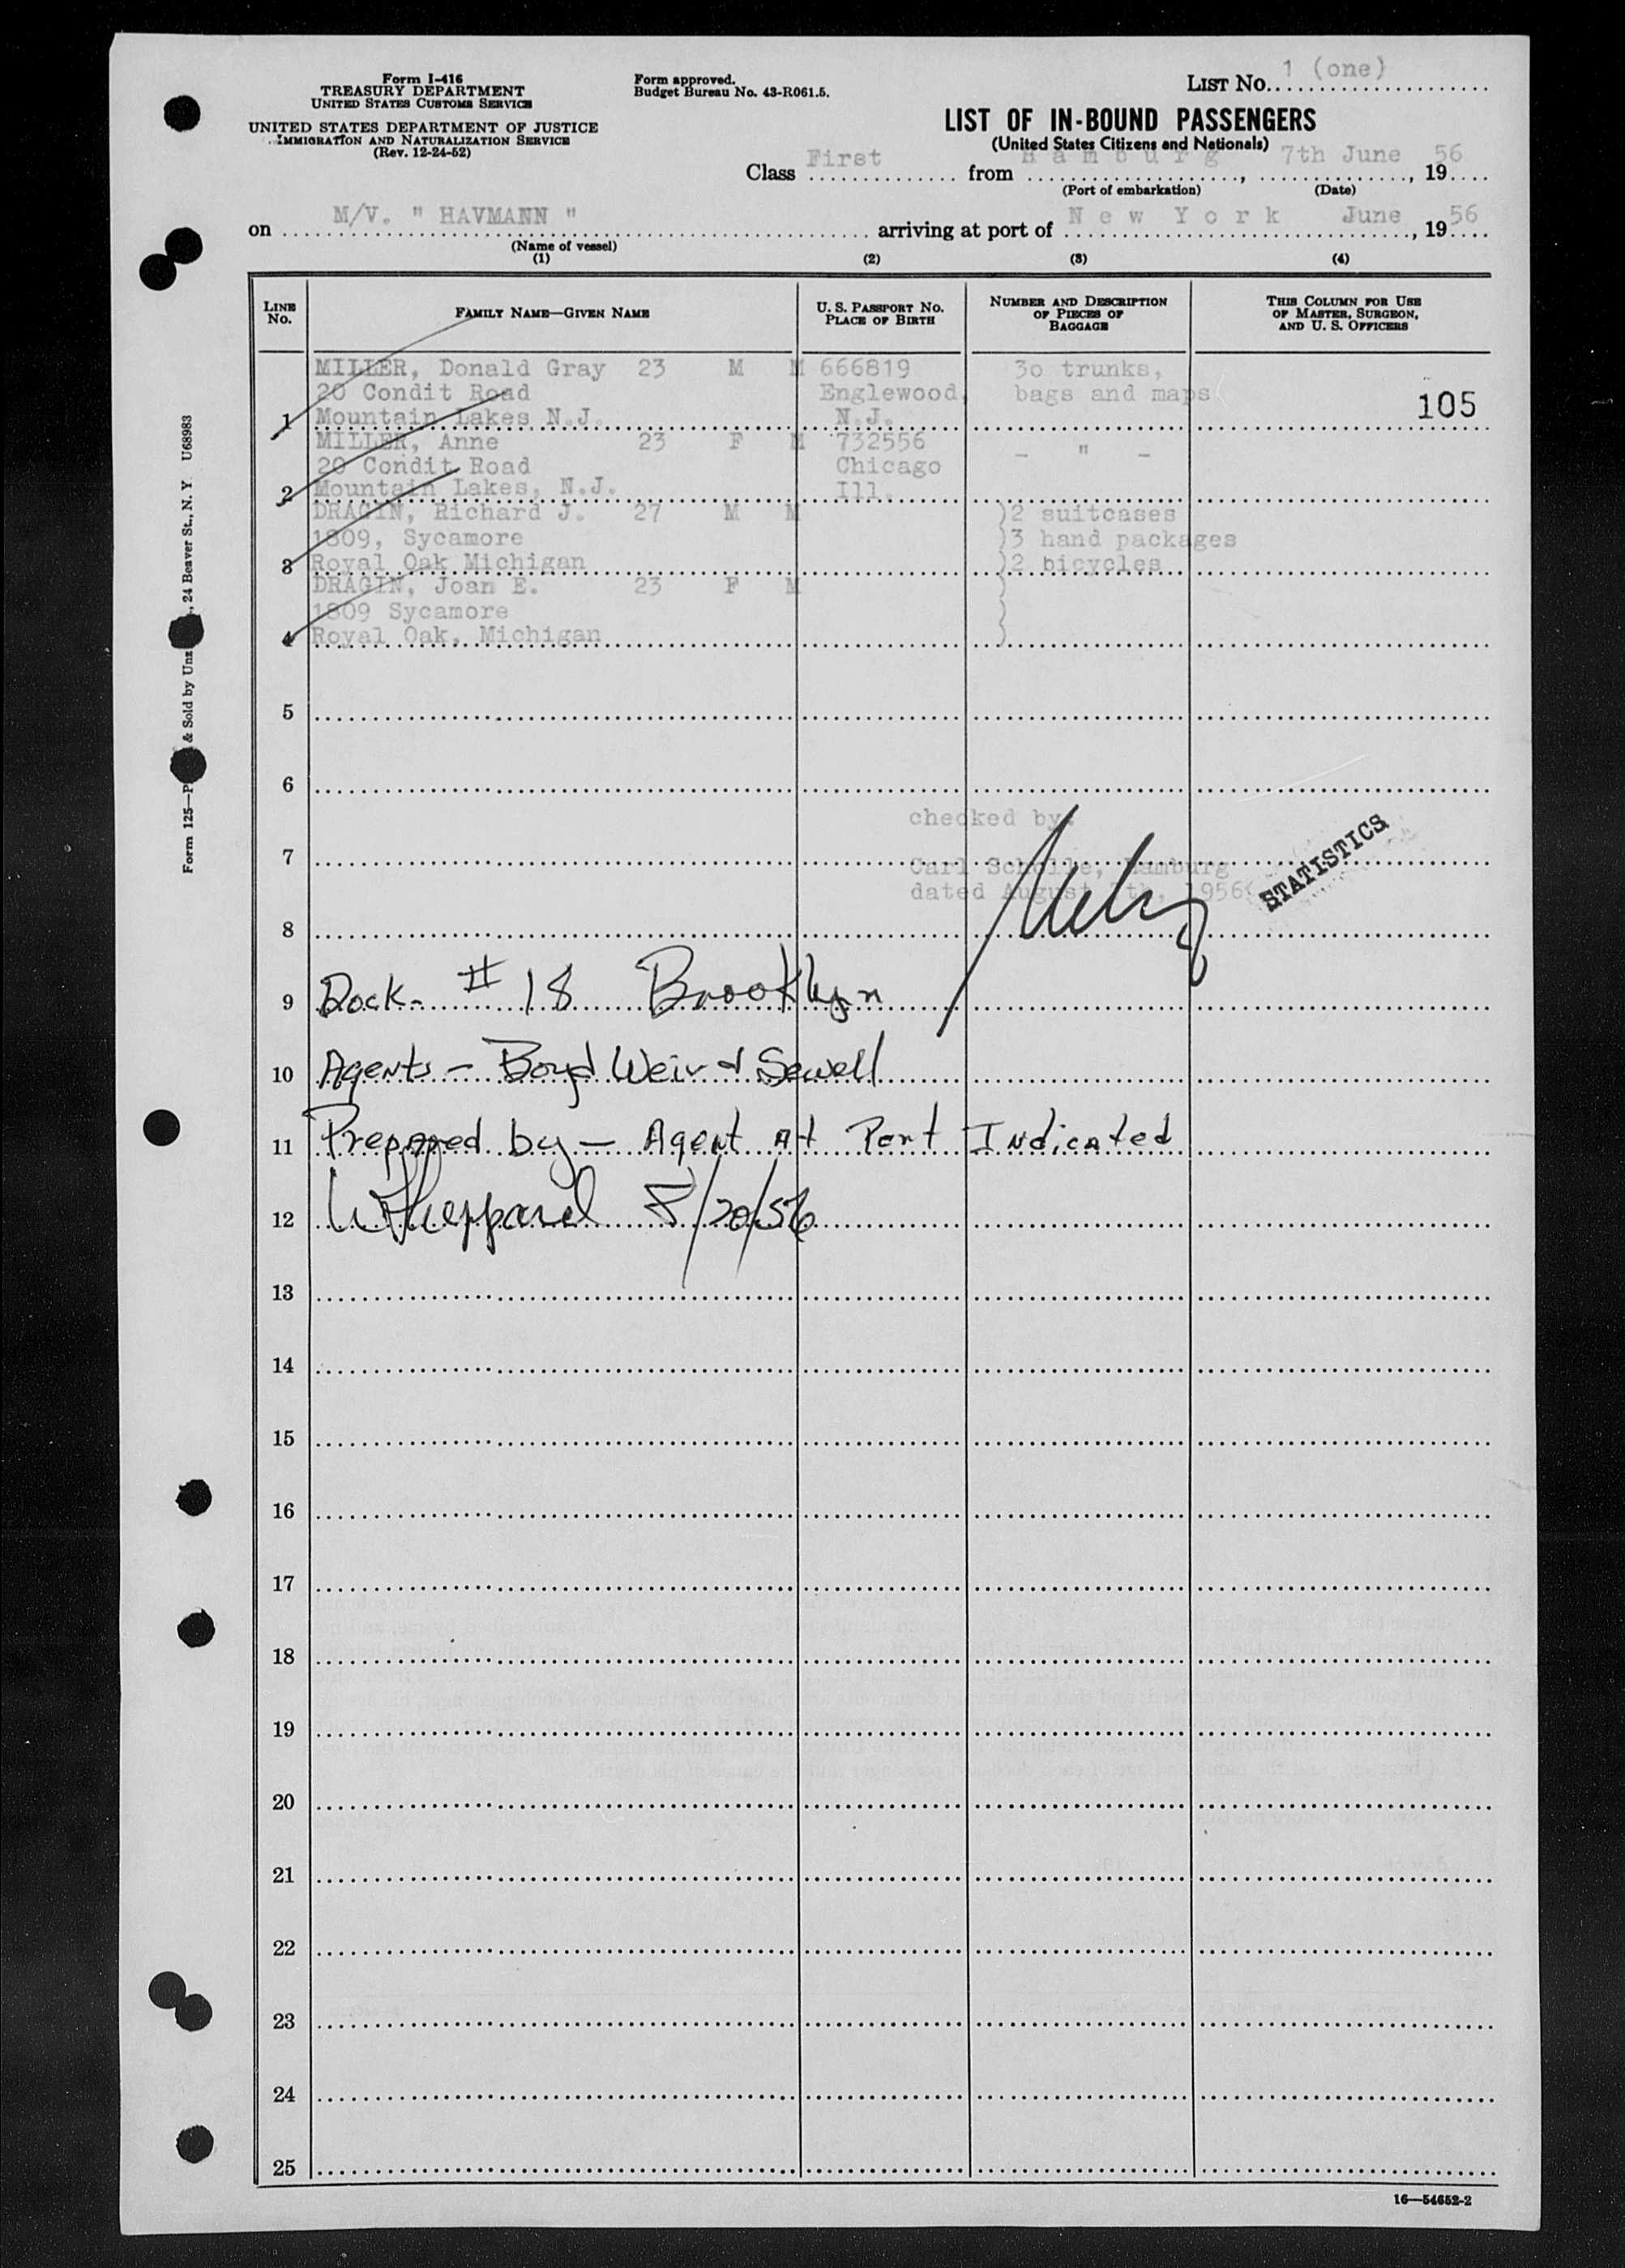 Form I-416
TREASURY DEPARTMENT
UNITED STATES CUSTOMS SERVICE
UNITED STATES DEPARTMENT OF JUSTICE
IMMIGRATION AND NATURALIZATION SERVICE
(Rev. 12-24-52)
Form approved.
Budget Bureau No. 43-R061.5.
LIST NO. 1 (one)
LIST OF IN-BOUND PASSENGERS
(United States Citizens and Nationals)
Class First from Hamburg, 7th June, 1956
(Port of embarkation) (Date)
on M/V. " HAVMANN " arriving at port of New York June, 1956
(Name of vessel)
(1) (2) (3) (4)
LINE No. FAMILY NAME—GIVEN NAME U. S. PASSPORT NO. PLACE OF BIRTH NUMBER AND DESCRIPTION OF PIECES OF BAGGAGE THIS COLUMN FOR USE OF MASTER, SURGEON, AND U. S. OFFICERS
MILLER, Donald Gray 23 M M 666819 3o trunks,
20 Condit Road Englewood, bags and maps
1 Mountain Lakes N.J. N.J. 105
MILLER, Anne 23 F M 732556 - " -
20 Condit Road Chicago
2 Mountain Lakes, N.J. Ill.
DRAGIN, Richard J. 27 M M )2 suitcases
1809, Sycamore )3 hand packages
3 Royal Oak Michigan )2 bicycles
DRAGIN, Joan E. 23 F M )
1809 Sycamore )
4 Royal Oak, Michigan )
5
6
checked by:
7 Carl Scholle, Hamburg
dated August th, 1956
STATISTICS
8
9 Dock- # 18 Brooklyn
10 Agents - Boyd Weir & Sewell
11 Prepared by - Agent At Port Indicated
12 W Sheppard 8/20/56
13
14
15
16
17
18
19
20
21
22
23
24
25
16—54652-2
Form 125—P & Sold by Unz , 24 Beaver St., N. Y U68983